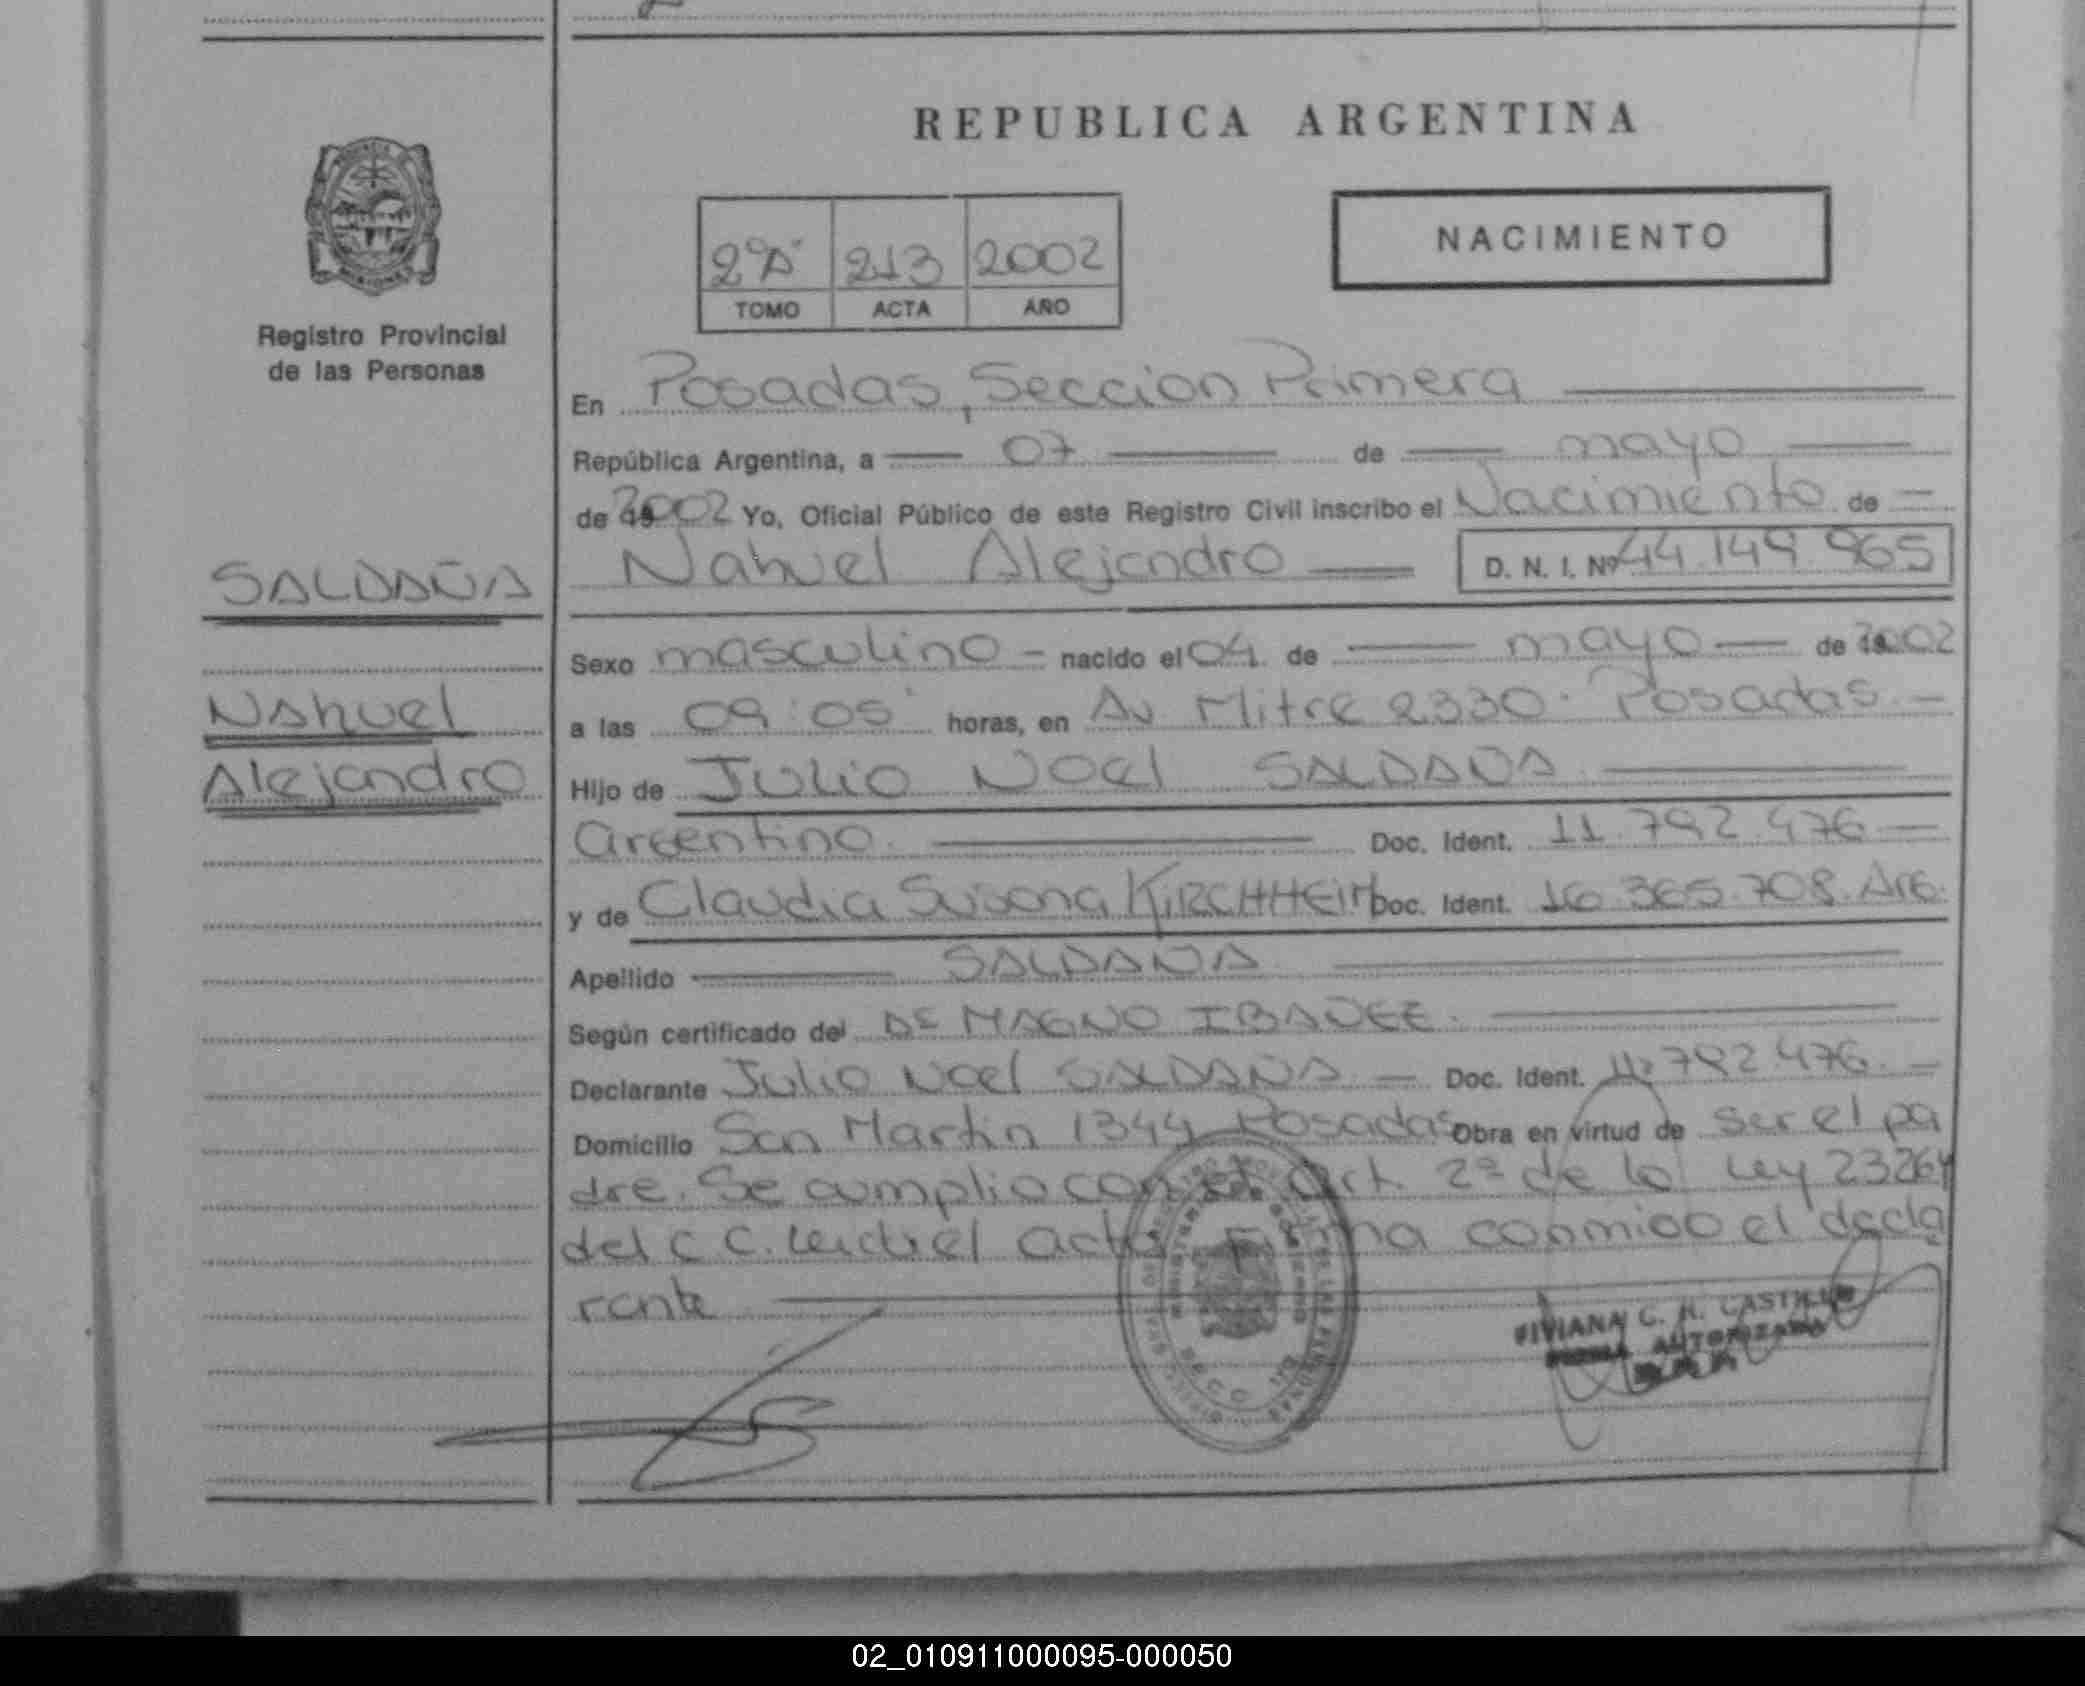 REPUBLICA ARGENTINA
2º"A" 213 2002
TOMO ACTA AÑO
NACIMIENTO
Registro Provincial
de las Personas
En Posadas, Sección Primera
República Argentina, a 07 de mayo
de 2002 Yo, Oficial Público de este Registro Civil inscribo el Nacimiento de
Nahuel Alejandro D. N. I. Nº 44.149.965
SALDAÑA
Sexo masculino - nacido el 04 de mayo de 2002
Nahuel
a las 09:05' horas, en Av. Mitre 2330. Posadas.
Alejandro
Hijo de Julio Noel SALDAÑA
argentino. Doc. Ident. 11.792.476
y de Claudia Susana KIRCHHEIM Doc. Ident. 16.365.708. Arg.
Apellido SALDAÑA
Según certificado del MAGNO IBAÑEZ.
Declarante Julio Noel SALDAÑA Doc. Ident. 11.792.476.
Domicilio San Martin 1344 Posadas Obra en virtud de ser el pa
dre. Se cumplio con el Art. 2º de la Ley 23264
del C C. Leida el acta Firma conmigo el decla
rante
VIVIANA C. R. CASTILLO
AUTORIZADA
02_010911000095-000050